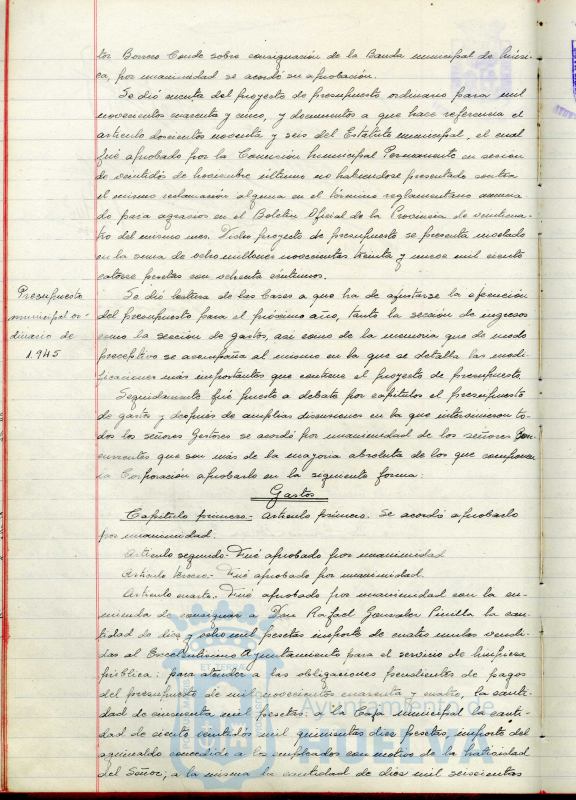 tor Borrero Conde sobre consignación de la Banda municipal de Músi-
ca, por unanimidad se acordó su aprobación.
Se dió cuenta del proyecto de presupuesto ordinario para mil
novecientos cuarenta y cinco, y documentos a que hace referencia el
articulo doscientos noventa y seis del Estatuto municipal, el cual
fué aprobado por la Comisión Municipal Permanente en sesion
de veintidós de Noviembre último no habiendose presentado contra
el mismo reclamación alguna en el término reglamentario anuncia
do para agravios en el Boletin Oficial de la Provincia de veinticua-
tro del mismo mes. Dicho proyecto de presupuesto se presenta nivelado
en la suma de ocho millones novecientas treinta y nueve mil ciento
catorce pesetas con ochenta céntimos.
Presupuesto
municipal or-
dinario de
1.945
Se dió lectura de las bases a que ha de ajustarse la ejecución
del presupuesto para el próximo año, tanto la sección de ingresos
como la sección de gastos, asi como de la memoria que de modo
preceptivo se acompaña al mismo en la que se detalla las modi-
ficaciones más importantes que contiene el proyecto de presupuesto.
Seguidamente fué puesto a debate por capitulos el presupuesto
de gastos y después de amplias discusiones en la que intervinieron to-
dos los señores Gestores se acordó por unanimidad de los señores con
currentes que son más de la mayoria absoluta de los que componen
la Corporación aprobarlo en la siguiente forma:
Gastos
Capitulo primero.- Articulo primero. Se acordó aprobarlo
por unanimidad.
Articulo segundo.- Fué aprobado por unanimidad
Articulo tercero.- Fué aprobado por unanimidad.
Articulo cuarto.- Fué aprobado por unanimidad con la en-
mienda de consignar a Don Rafael Gonzalez Pinilla la can-
tidad de diez y ocho mil pesetas importe de cuatro mulos vendi-
dos al Excelentisimo Ayuntamiento para el servicio de limpieza
pública: para atender a las obligaciones pendientes de pagos
del presupuesto de mil novecientos cuarenta y cuatro, la canti-
dad de cincuenta mil pesetas: a la Caja municipal la canti-
dad de ciento veintidos mil quinientas diez pesetas, importe del
aguinaldo concedido a los empleados con motivo de la Natividad
del Señor; a la misma la cantidad de diez mil seiscientas
Ayuntamiento de
HUELVA